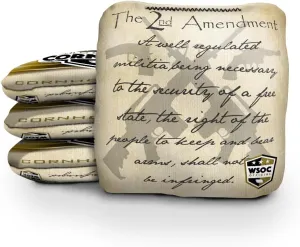 The 2nd Amendment
A well regulated
militia being necessary
to the security of a free
state, the right of the
people to keep and bear
arms, shall not
be infringed.
WSOC
CORNHO
CORNHO
CORNHO